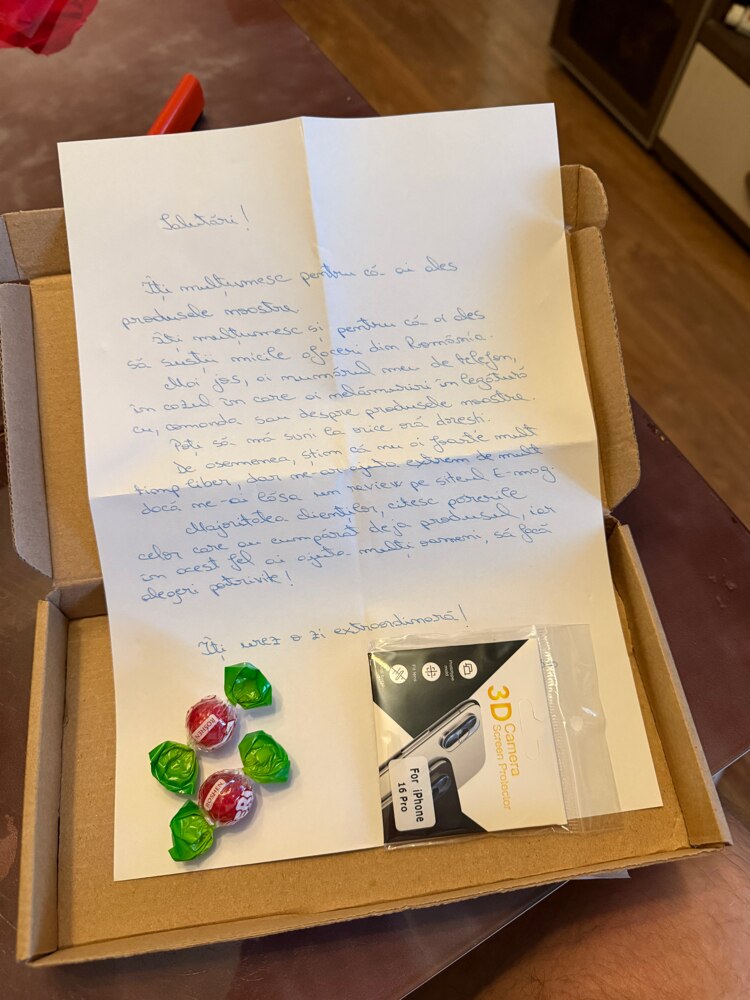 Salutări!
Îți mulțumesc pentru că ai ales
produsele noastre.
Îți mulțumesc și pentru că ai ales
să susții micile afaceri din România.
Mai jos, ai numărul meu de telefon,
în cazul în care ai nelămuriri în legătură
cu, comanda sau despre produsele noastre.
Poți să mă suni la orice oră drești.
De asemenea, știm că nu ai foarte mult
timp liber, dar ne-ar ajuta extrem de mult
dacă ne-ai lăsa un review pe siteul E-mag.
Majoritatea clienților, citesc părerile
celor care au cumpărat deja produsul, iar
în acest fel ai ajuta mulți oameni, să facă
alegeri potrivite!
Îți urez o zi extraordinară!
3D Camera
Screen Protector
For iPhone
16 Pro
ROSHEN